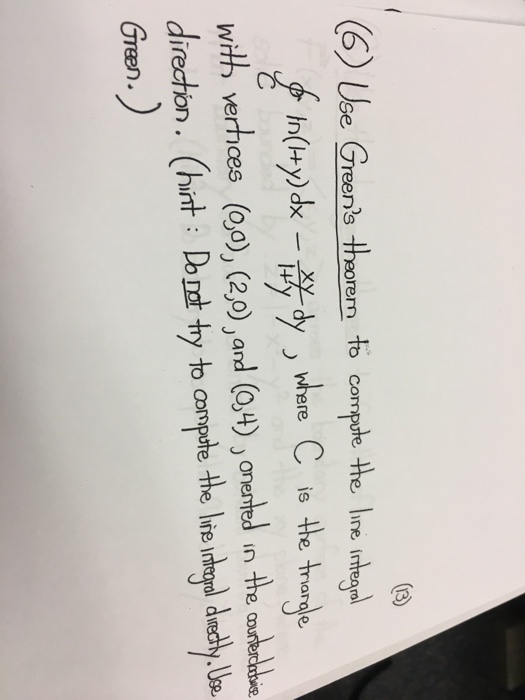 (13)
(6) Use Green's theorem to compute the line integral
∮_C ln(1+y)dx − xy/(1+y) dy, where C is the triangle
with vertices (0,0), (2,0), and (0,4), oriented in the counterclockwise
direction. (hint: Do not try to compute the line integral directly. Use
Green.)